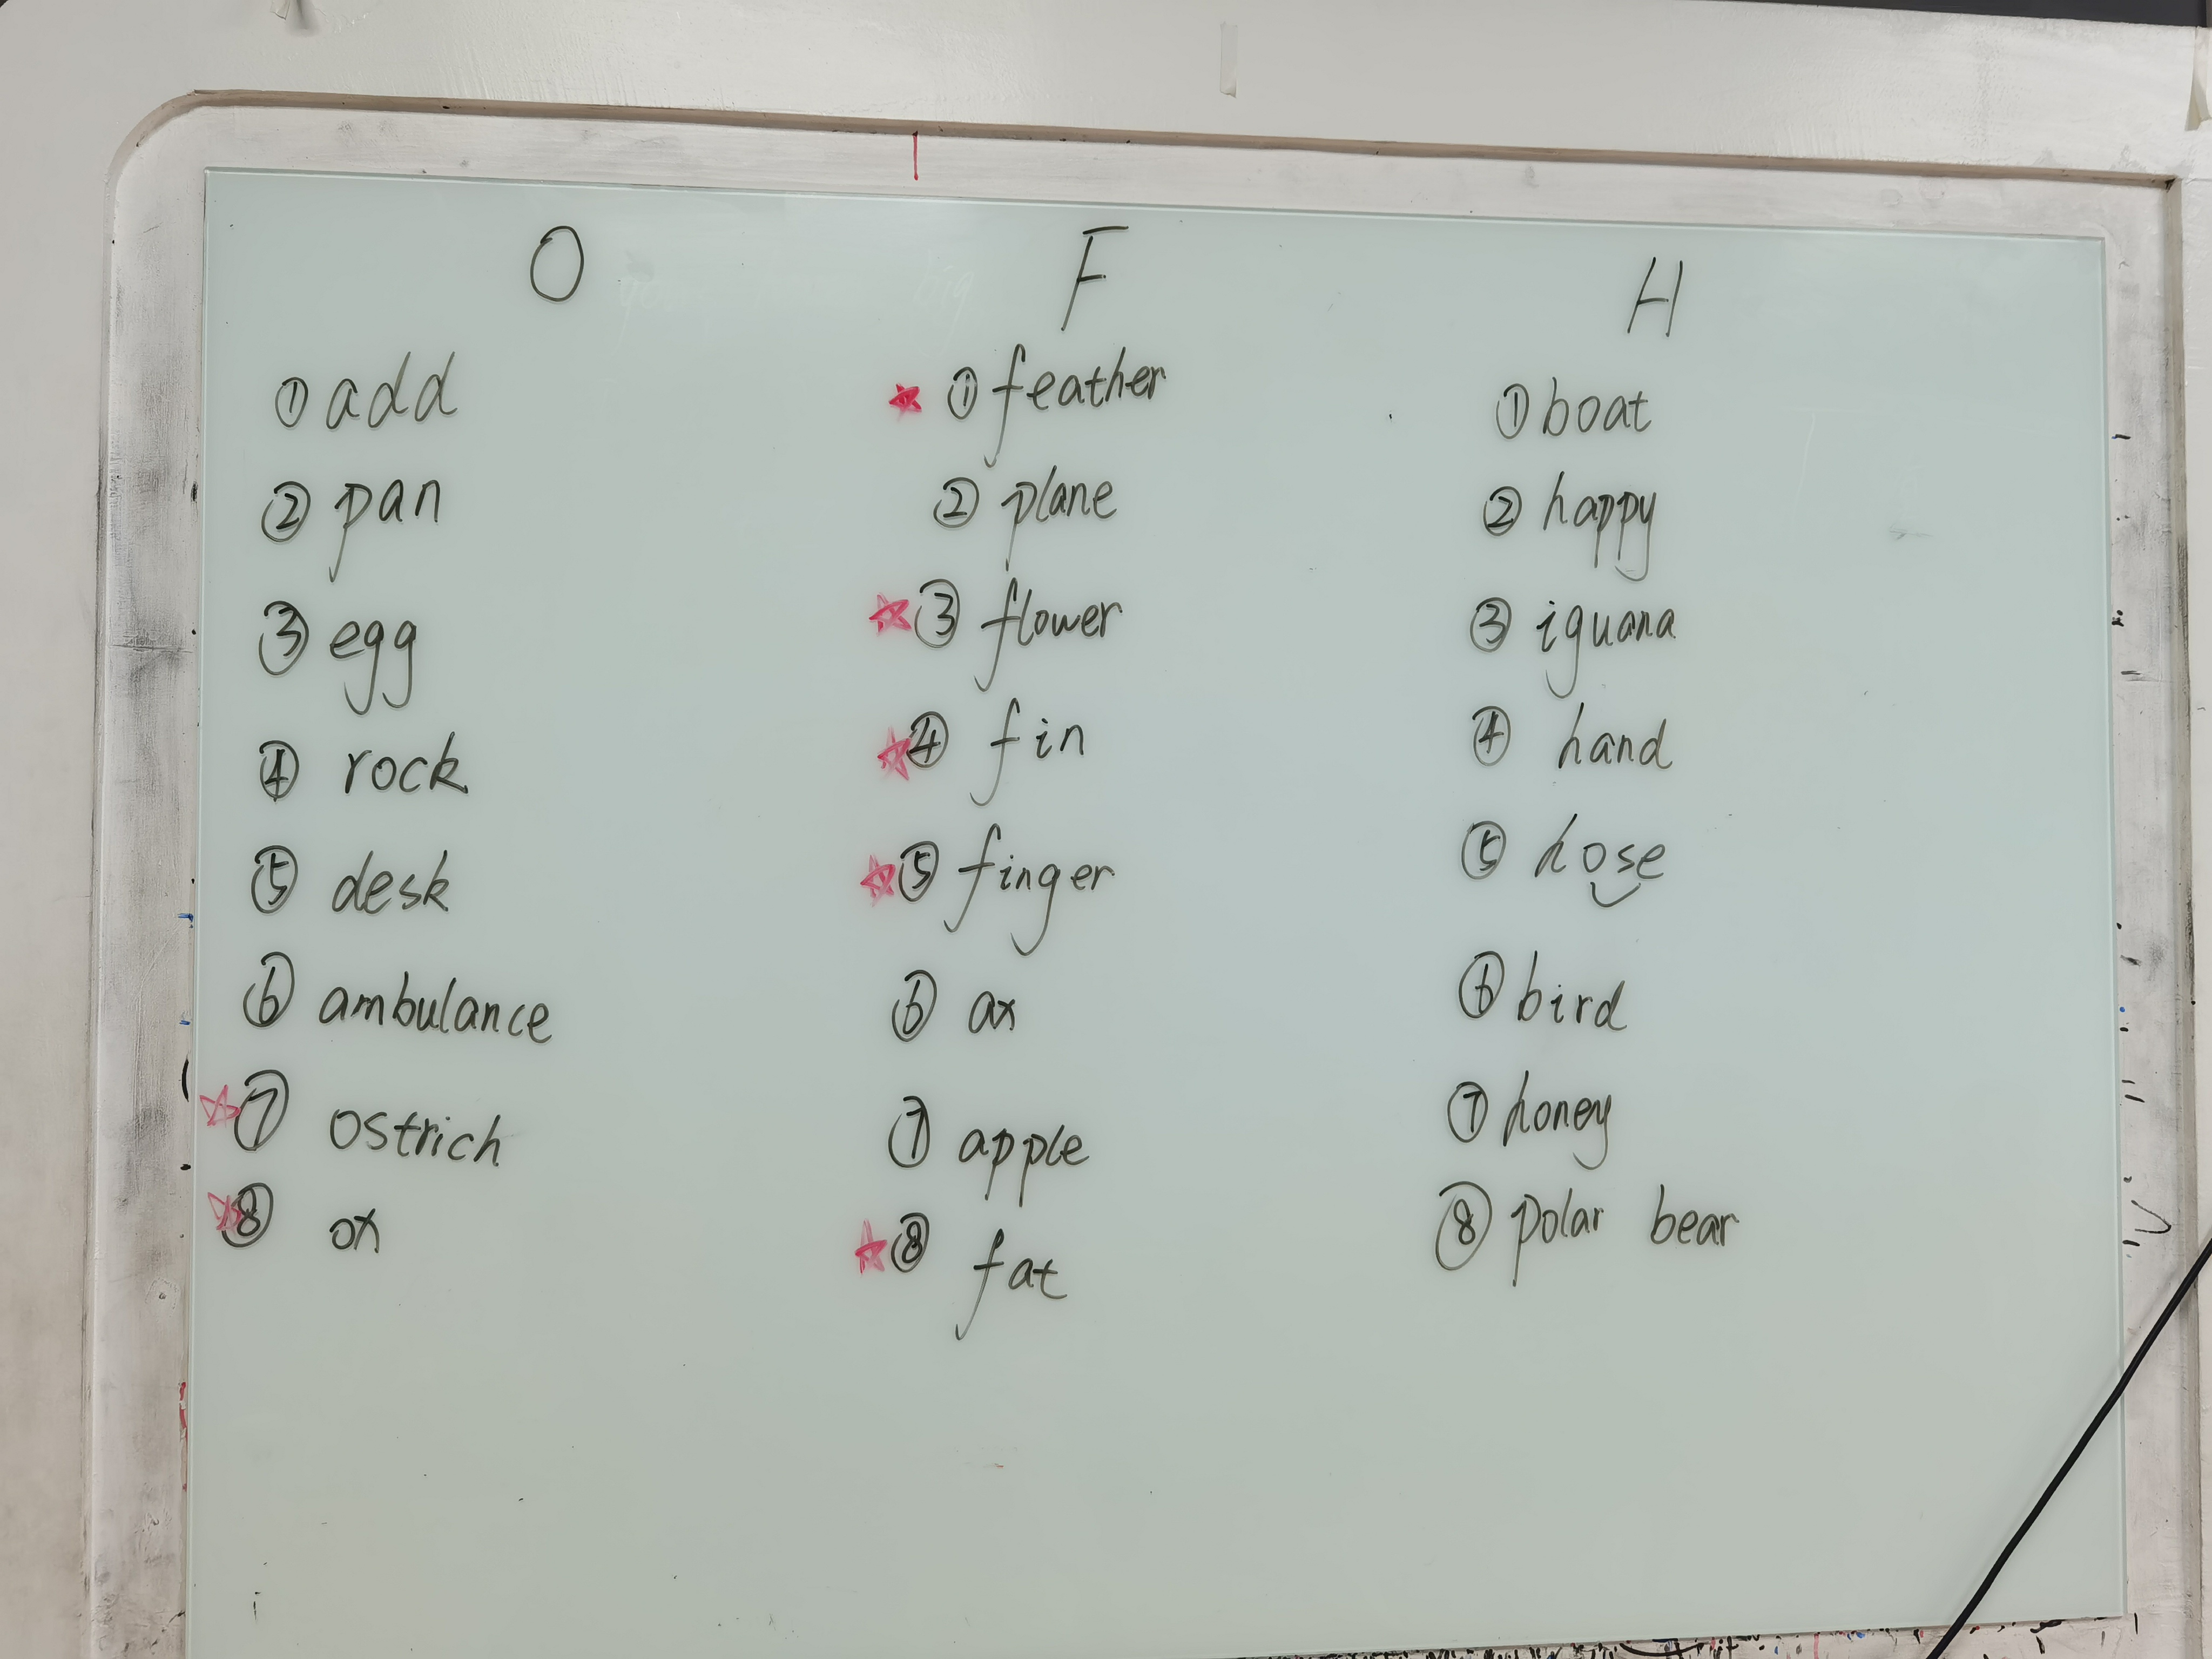 O
① add
② pan
③ egg
④ rock
⑤ desk
⑥ ambulance
⑦ ostrich
⑧ ox
F
① feather
② plane
③ flower
④ fin
⑤ finger
⑥ ax
⑦ apple
⑧ fat
H
① boat
② happy
③ iguana
④ hand
⑤ hose
⑥ bird
⑦ honey
⑧ polar bear